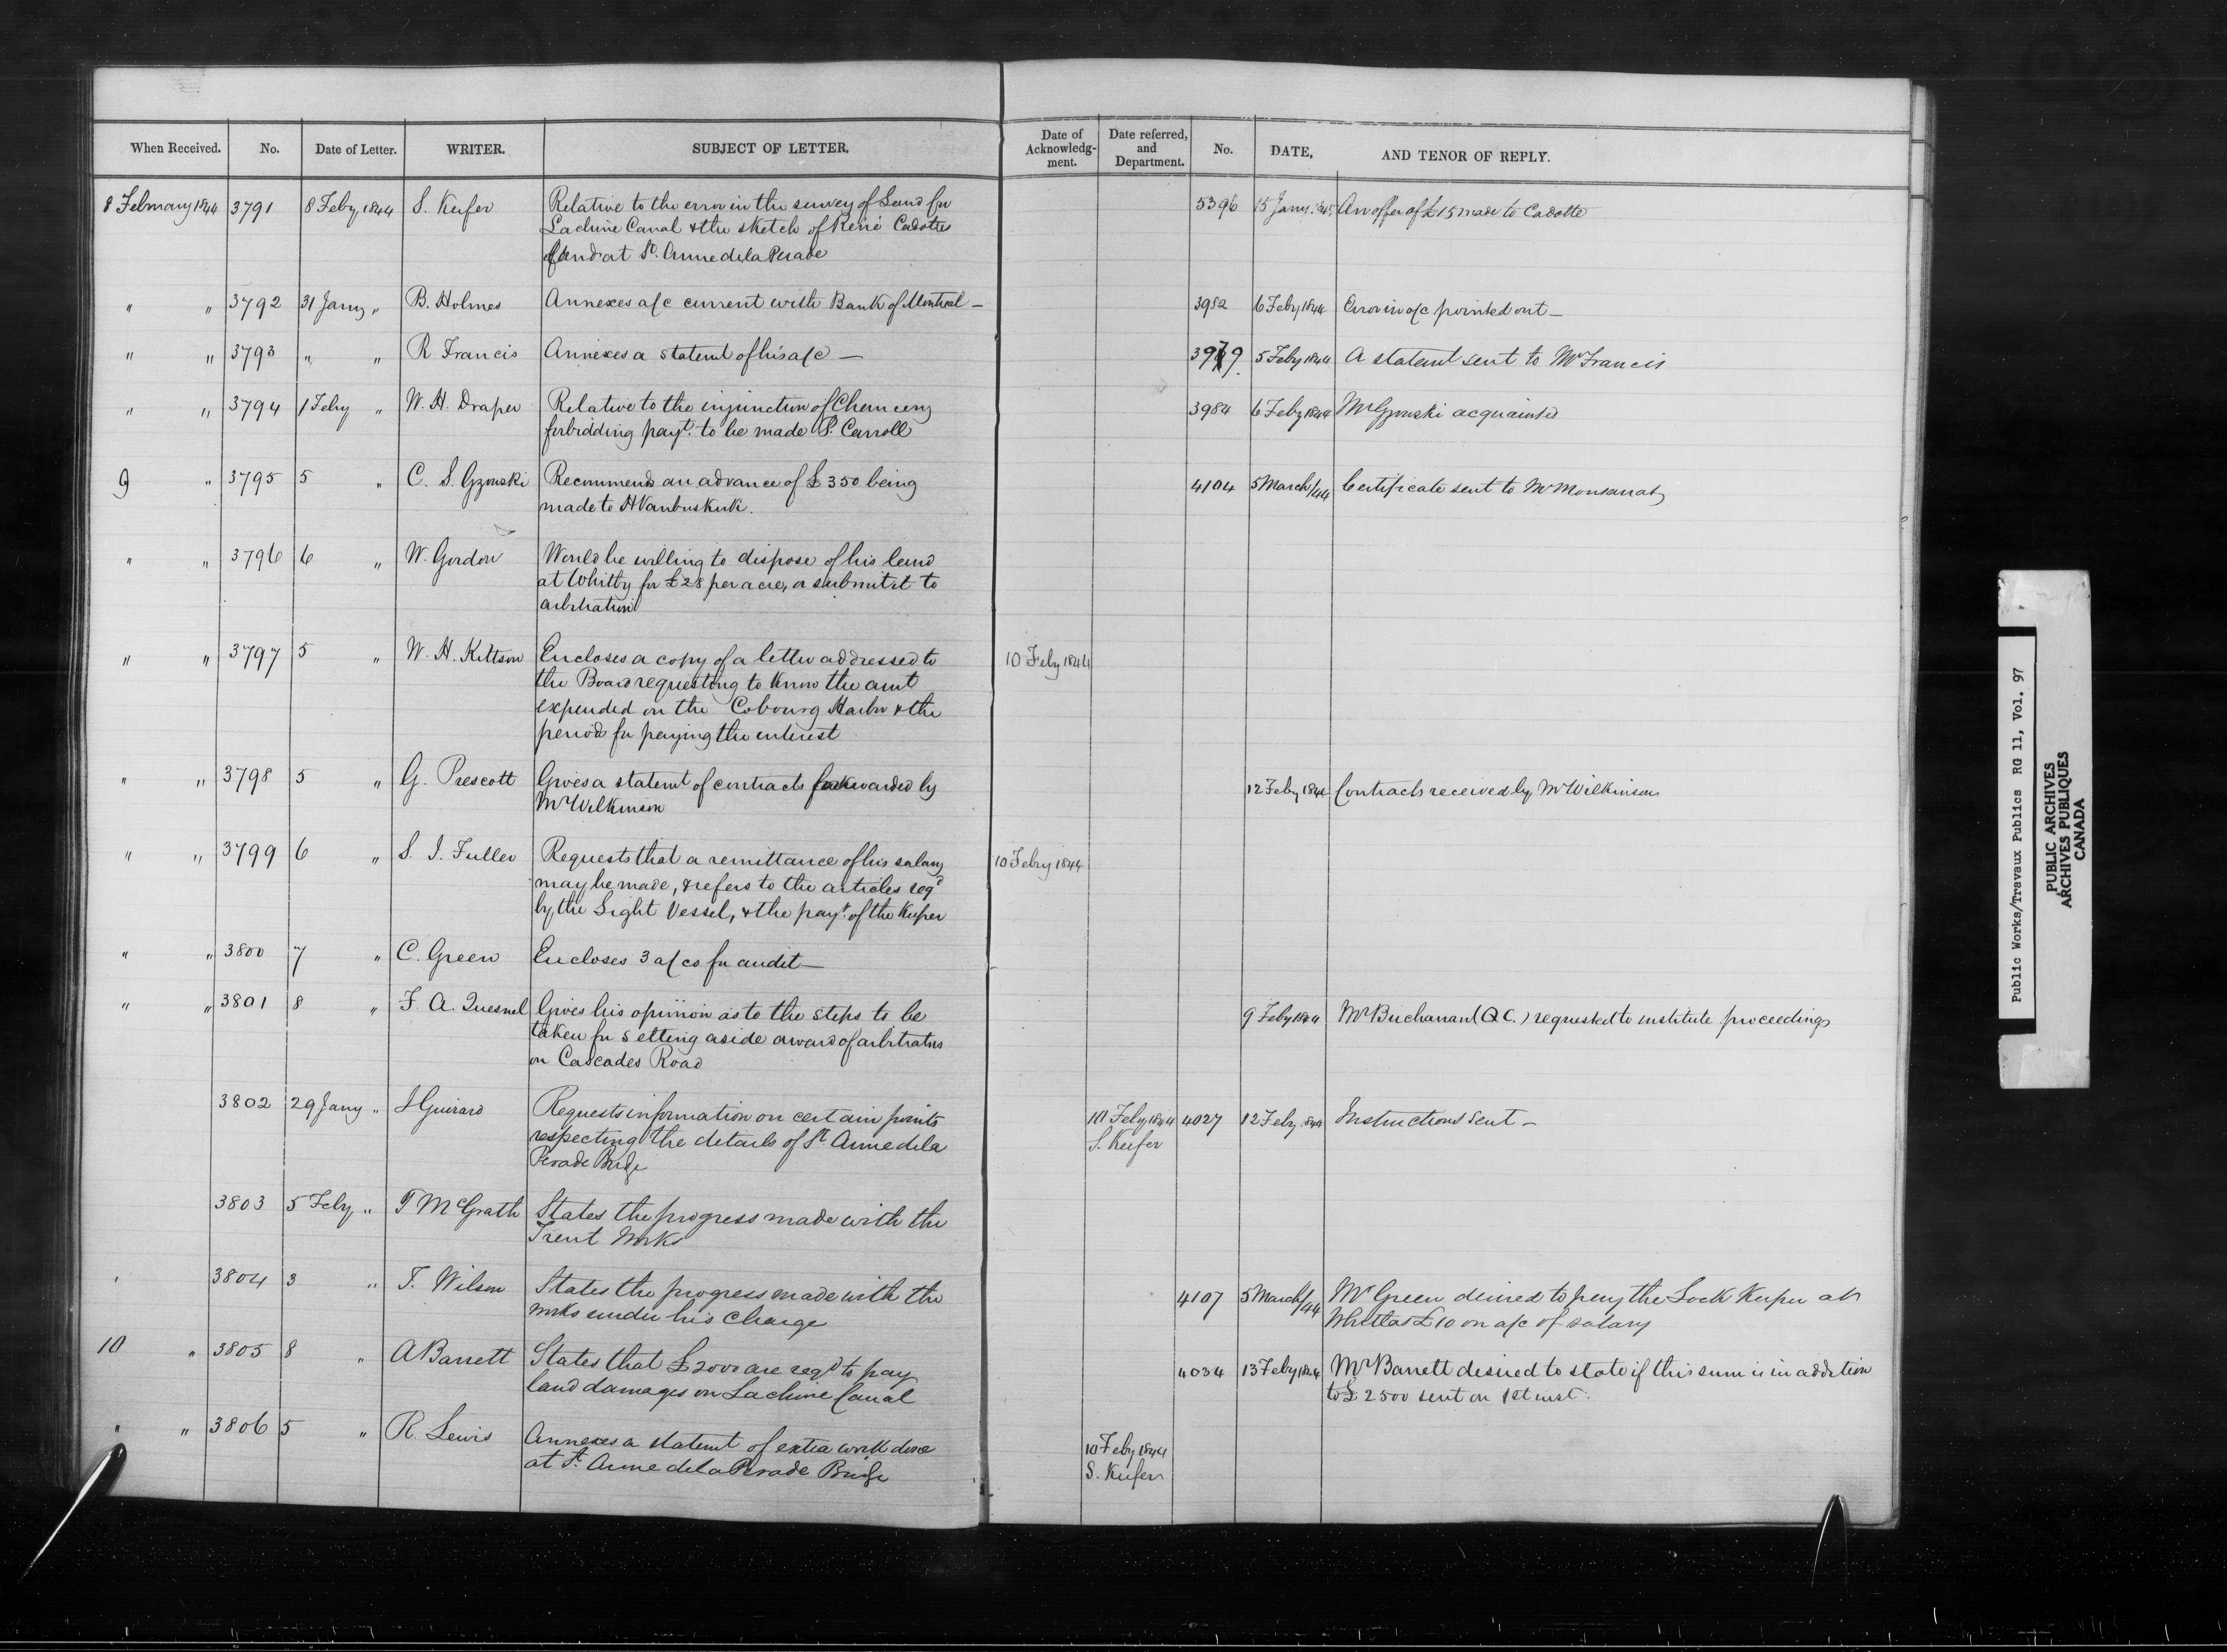 When Received. No. Date of Letter. WRITER. SUBJECT OF LETTER.
Date of Acknowledg-ment. Date referred, and Department. No. DATE, AND TENOR OF REPLY.
8 February 1844 3791 8 Feby 1844 S. Keefer Relative to the error in the survey of Land for
Lachine Canal & the sketch of Réné Cadottes
land at St. Anne de la Perade
5396 15 Jany. '45 An offer of £15 made to Cadotte
" " 3792 31 Jany " B. Holmes Annexes a/c current with Bank of Montreal —
3982 6 Feby 1844 Error in a/c pointed out —
" " 3793 " " R Francis Annexes a statemt of his a/c —
3979 5 Feby 1844 A statemt sent to Mr Francis
" " 3794 1 Feby " W. H. Draper Relative to the injunction of Chancery
forbidding payt. to be made P. Carroll
3984 6 Feby 1844 Mr Gzowski acquainted
9 " 3795 5 " C. S. Gzowski Recommends an advance of £350 being
made to H Vanbuskirk.
4104 5 March/44 Certificate sent to Mr Monsarrat
" " 3796 6 " W. Gordon Would be willing to dispose of his land
at Whitby for £28 per acre, or submit it to
arbitration
" " 3797 5 " W. H. Kittson Encloses a copy of a letter addressed to
the Board requesting to know the amt
expended on the Cobourg Harbor & the
periods for paying the interest
10 Feby 1844
" " 3798 5 " G. Prescott Gives a statemt of contracts forwarded by
Mr Wilkinson
12 Feby 1844 Contracts received by Mr Wilkinson
" " 3799 6 " S. I. Fuller Requests that a remittance of his salary
may be made, & refers to the articles reqd
by the Light Vessel, & the payt. of the Keeper
10 Feby 1844
" " 3800 7 " C. Green Encloses 3 a/cs for audit —
" " 3801 8 " F. A. Quesnel Gives his opinion as to the steps to be
taken for setting aside award of arbitrators
on Cascades Road
9 Feby 1844 Mr Buchanan (Q.C.) requested to institute proceedings
3802 29 Jany " L Guirard Requests information on certain points
respecting the details of St Anne de la
Perade Bridge
10 Feby 1844 4027 12 Feby 1844 Instructions sent —
S. Keefer
3803 5 Feby " T McGrath States the progress made with the
Trent Works
3804 3 " T. Wilson States the progress made with the
works under his charge
4107 5 March/44 Mr Green desired to pay the Lock Keeper at
£10 on a/c of salary
10 " 3805 8 " A Barrett States that £2000 are reqd to pay
land damages on Lachine Canal
4034 13 Feby 1844 Mr Barrett desired to state if this sum is in addition
to £2500 sent on 1st inst.
" " 3806 5 " R. Lewis Annexes a statemt of extra work done
at St. Anne de la Perade Bridge
10 Feby 1844
S. Keefer
Public Works/Travaux Publics RG 11, Vol. 97
PUBLIC ARCHIVES
ARCHIVES PUBLIQUES
CANADA